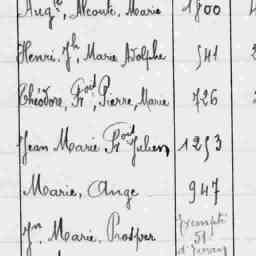 Augte, Alcoute, Marie 1800
Henri, Jh, Marie Adolphe 541
Théodore, Frois, Pierre, Marie 726
Jean Marie Frois Julien 1253
Marie, Ange 947
Jn Marie, Prosper Exempté 51